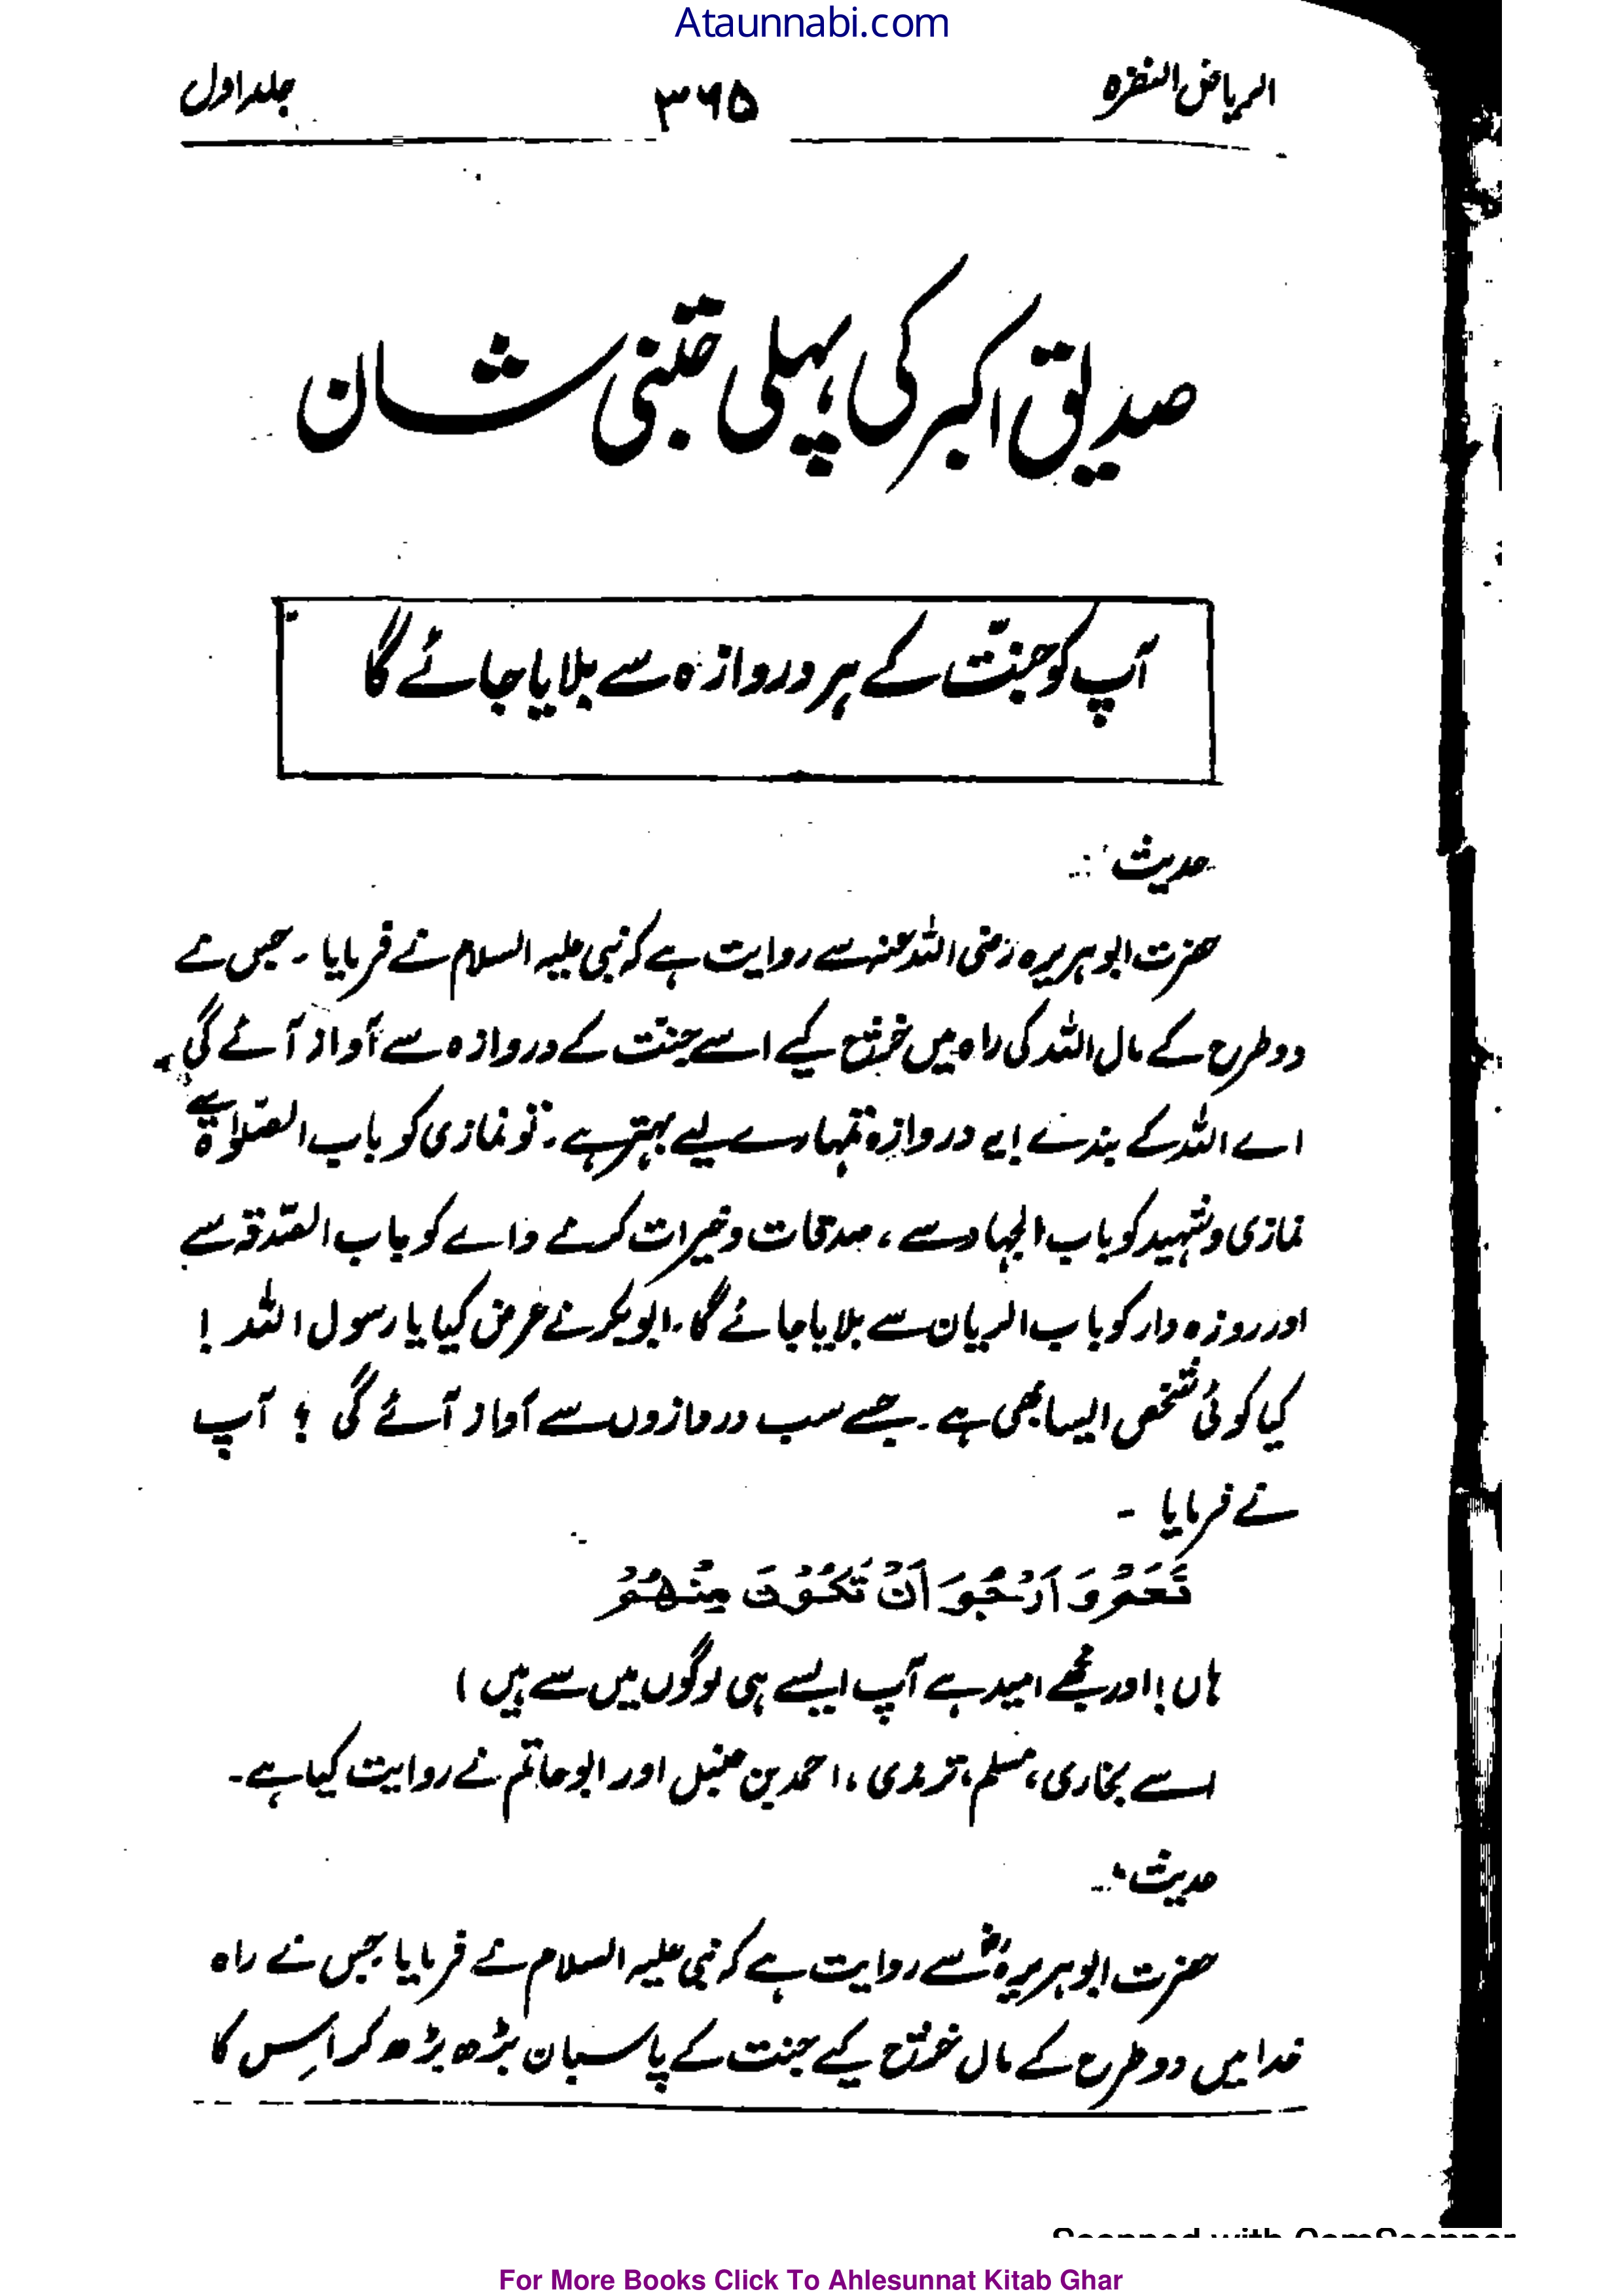 Ataunnabi.com
الریاض النضرہ ۳۶۵ جلد اول
صدیق اکبر کی پہلی جنتی شان
آپ کو جنّت کے ہر دروازہ سے بلایا جائے گا
حدیث :
حضرت ابو ہریرہ رضی اللہ عنہ سے روایت ہے کہ نبی علیہ السلام نے فرمایا ۔ جس نے
دو طرح کے مال اللہ کی راہ میں خرچ کیے اسے جنّت کے دروازہ سے آواز آئے گی
اے اللہ کے بندے یہ دروازہ تمہارے لیے بہتر ہے ۔ تو نمازی کو باب الصّلوٰۃ سے
نمازی و شہید کو باب الجہاد سے ، صدقات و خیرات کرنے والے کو باب الصّدقہ سے
اور روزہ دار کو باب الریان سے بلایا جائے گا ۔ ابوبکر نے عرض کیا یا رسول اللہ !
کیا کوئی شخص ایسا بھی ہے ۔ جسے سب دروازوں سے آواز آئے گی ؟ آپ
نے فرمایا ۔
نَعَمْ وَ اَرْجُوَ اَنْ تَکُوْنَ مِنْهُمْ
ہاں ! اور مجھے امید ہے آپ ایسے ہی لوگوں میں سے ہیں )
اسے بخاری ، مسلم ، ترمذی ، احمد بن حنبل اور ابو حاتم نے روایت کیا ہے ۔
حدیث :
حضرت ابو ہریرہؓ سے روایت ہے کہ نبی علیہ السلام نے فرمایا جس نے راہ
خدا میں دو طرح کے مال خرچ کیے جنت کے پاسبان بڑھ بڑھ کر اس کا
Scanned with CamScanner
For More Books Click To Ahlesunnat Kitab Ghar